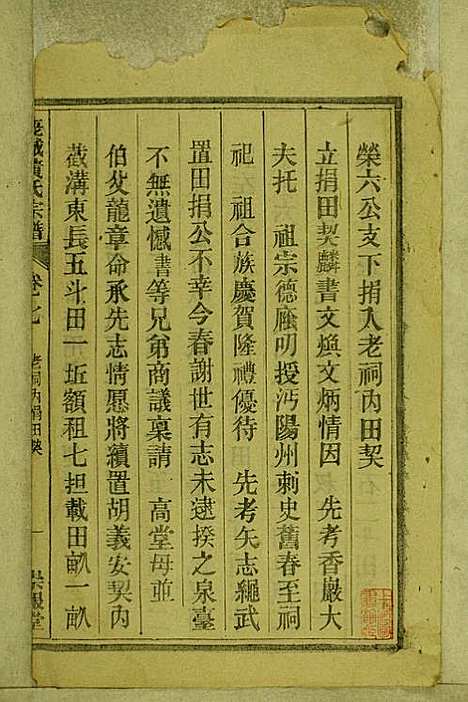 榮六公支下捐入老祠內田契
立捐田契麟書文煥文炳情因 先考香巖大
夫托 祖宗德廕叨授沔陽州刺史舊春至祠
祀 祖合族慶賀隆禮優待 先考矢志繩武
置田捐公不幸今春謝世有志未逮揆之泉臺
不無遺憾書等兄弟商議稟請 高堂母並
伯父龍章命承先志情愿將續置胡義安契內
截溝東長五斗田一坵額租七担載田畝一畝
黃氏宗譜 卷之 老祠內捐田契 一 堂